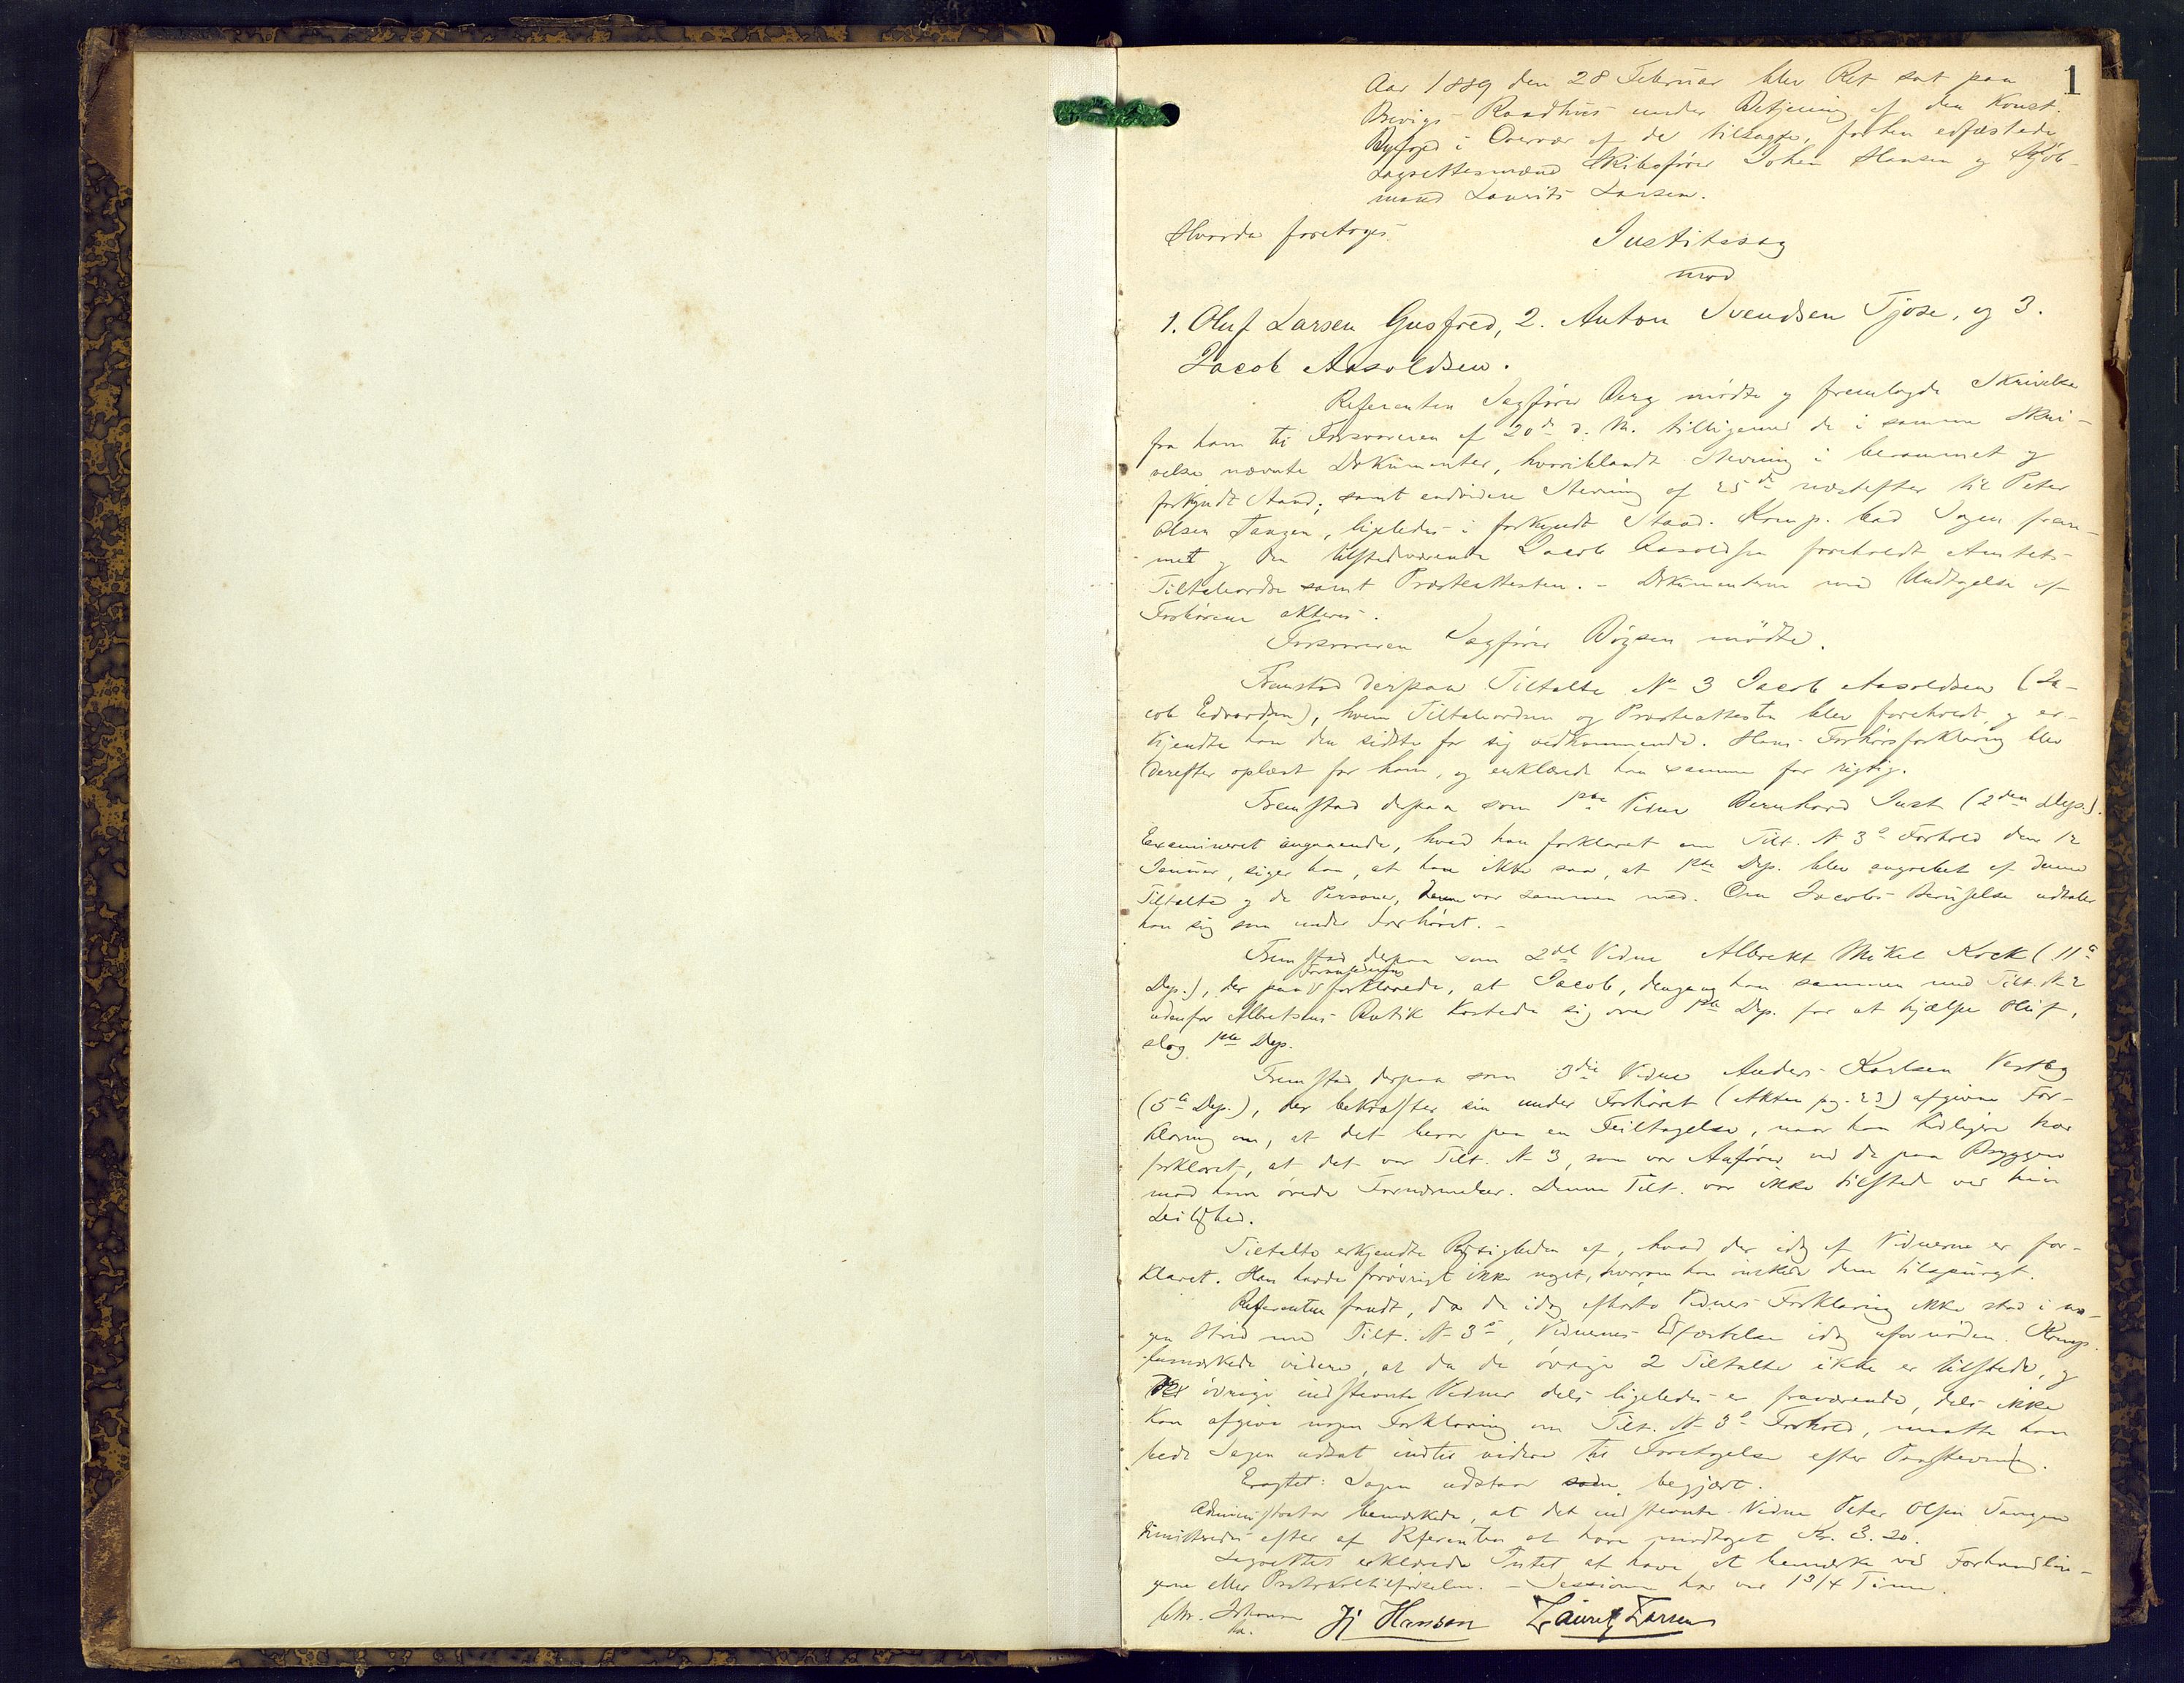 1
Aar 1889 den 28 Februar blev Ret sat paa
Brevigs Raadhus under Betjening af den Konst.
Byfoged i Overvær af de tilsagte, forhen edfæstede
Lagrettesmænd Skibsfører Johan Hansen og Kjøb-
mand Laurits Larsen.
Hvorda foretoges
Justitssag
mod
1. Oluf Larsen Gusfred, 2. Anton Svendsen Tjose, og 3.
Jacob Aasoldsen.
Referenten Sagfører Berg mødte og fremlagde Skrivelse
fra ham til Forsvareren af 20de d. M. tilligemed de i samme Skri-
velse nævnte Dokumenter, hvoriblandt Stevning i berammet og
forkyndt Stand; samt endvidere Stevning af 25de næstefter til Peter
Olsen Tangen, ligeledes i forkyndt Stand. Komp. bad Sagen frem-
met og den tilstedeværende Jacob Aasoldsen foreholdt Amtets
Tiltaleordre samt Præsteattesten. - Dokumenterne med Undtagelse af
Forhørene akteres.
Forsvareren Sagfører Böysen mødte.
Fremstod derpaa Tiltalte No 3 Jacob Aasoldsen (Ja-
cob Edvardsen), hvem Tiltaleordren og Præsteattesten blev foreholdt, og er-
kjendte han den sidste for sig vedkommende. Hans Forhørsforklaring blev
derefter oplæst for ham, og erklærede han samme for rigtig.
Fremstod derpaa som 1ste Vidne Bernhard Just (2den Dep.).
Examineret angaaende, hvad han forklaret om Tilt. N 3s Forhold den 12
Januar, siger han, at han ikke saa, at 1ste Dep. blev angrebet af denne
Tiltalte og de Personer, denne var sammen med. Om Jacobs Beruselse udtaler
han sig som under Forhøret. -
Fremstod derpaa som 2det Vidne Albrekt Mikel Kock (11te
Dep.), der paa Foranledning forklarede, at Jacob, dengang han sammen med Tilt. N 2
udenfor Albretsens Butik kastede sig over 1ste Dep. for at hjælpe Oluf,
slog 1ste Dep.
Fremstod derpaa som 3die Vidne Anders Karlsen Vestby
(5te Dep.), der bekræfter sin under Forhøret (Akten pg. 23) afgivne For-
klaring om, at det beror paa en Feiltagelse, naar han tidligere har
forklaret, at det var Tilt. N 3, som var Anfører ved de paa Bryggen
mod ham øvede Fornærmelser. Denne Tilt. var ikke tilstede ved hin
Leilighed.
Tiltalte erkjendte Rigtigheden af, hvad der idag af Vidnerne er for-
klaret. Han havde forøvrigt ikke noget, hvorom han ønskede dem tilspurgt.
Referenten fandt, da de idag afhørte Vidners Forklaring ikke stod i no-
gen Strid med Tilt. N 3s, Vidnernes Edfæstelse idag ufornøden. Komp.
bemærkede videre, at da de øvrige 2 Tiltalte ikke er tilstede, og
de øvrige indstevnte Vidner dels ligeledes er fraværende, dels ikke
kan afgive nogen Forklaring om Tilt. N 3s Forhold, maatte han
bede Sagen udsat indtil videre til Foretagelse efter Paastevning.
Eragtet: Sagen udstaar som begjært.
Administrator bemærkede, at det indstevnte Vidne Peter Olsen Tangen
dimitteredes efter af Referenten at have modtaget Kr. 3.20.
Lagrettet erklærede Intet at have at bemærke ved Forhandlin-
gene eller Protokoltilførselen. - Sessionen har var 1 3/4 Time.
Chr. Johansen J Hansen Laurits Larsen